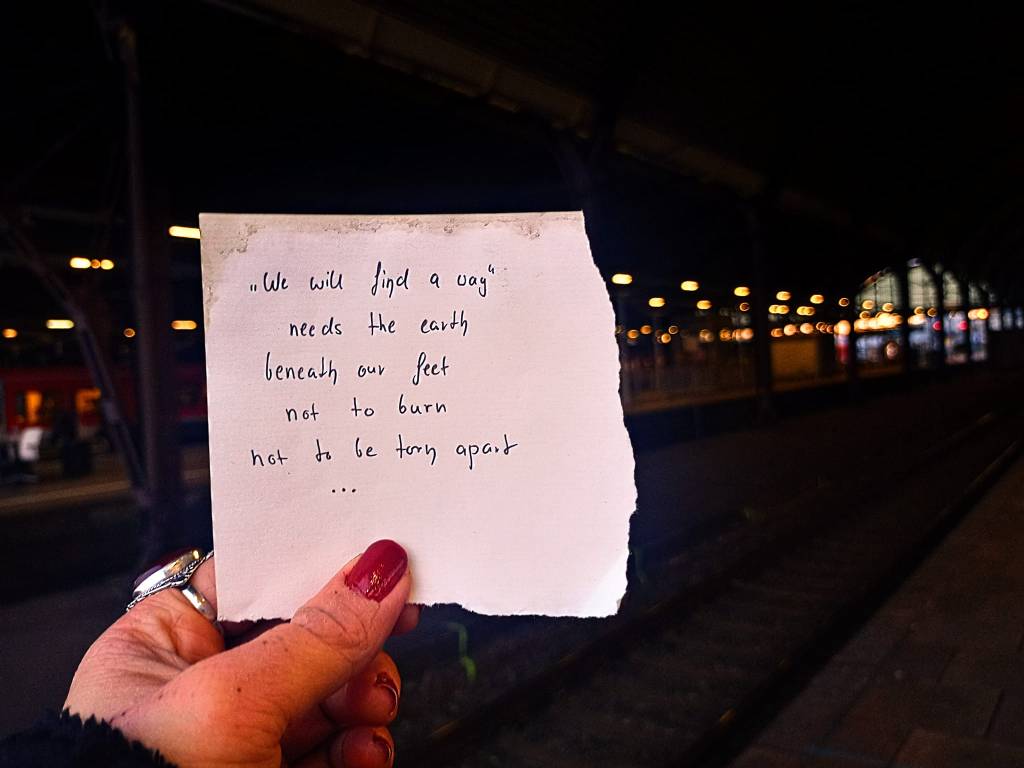 „We will find a way“
needs the earth
beneath our feet
not to burn
not to be torn apart
...